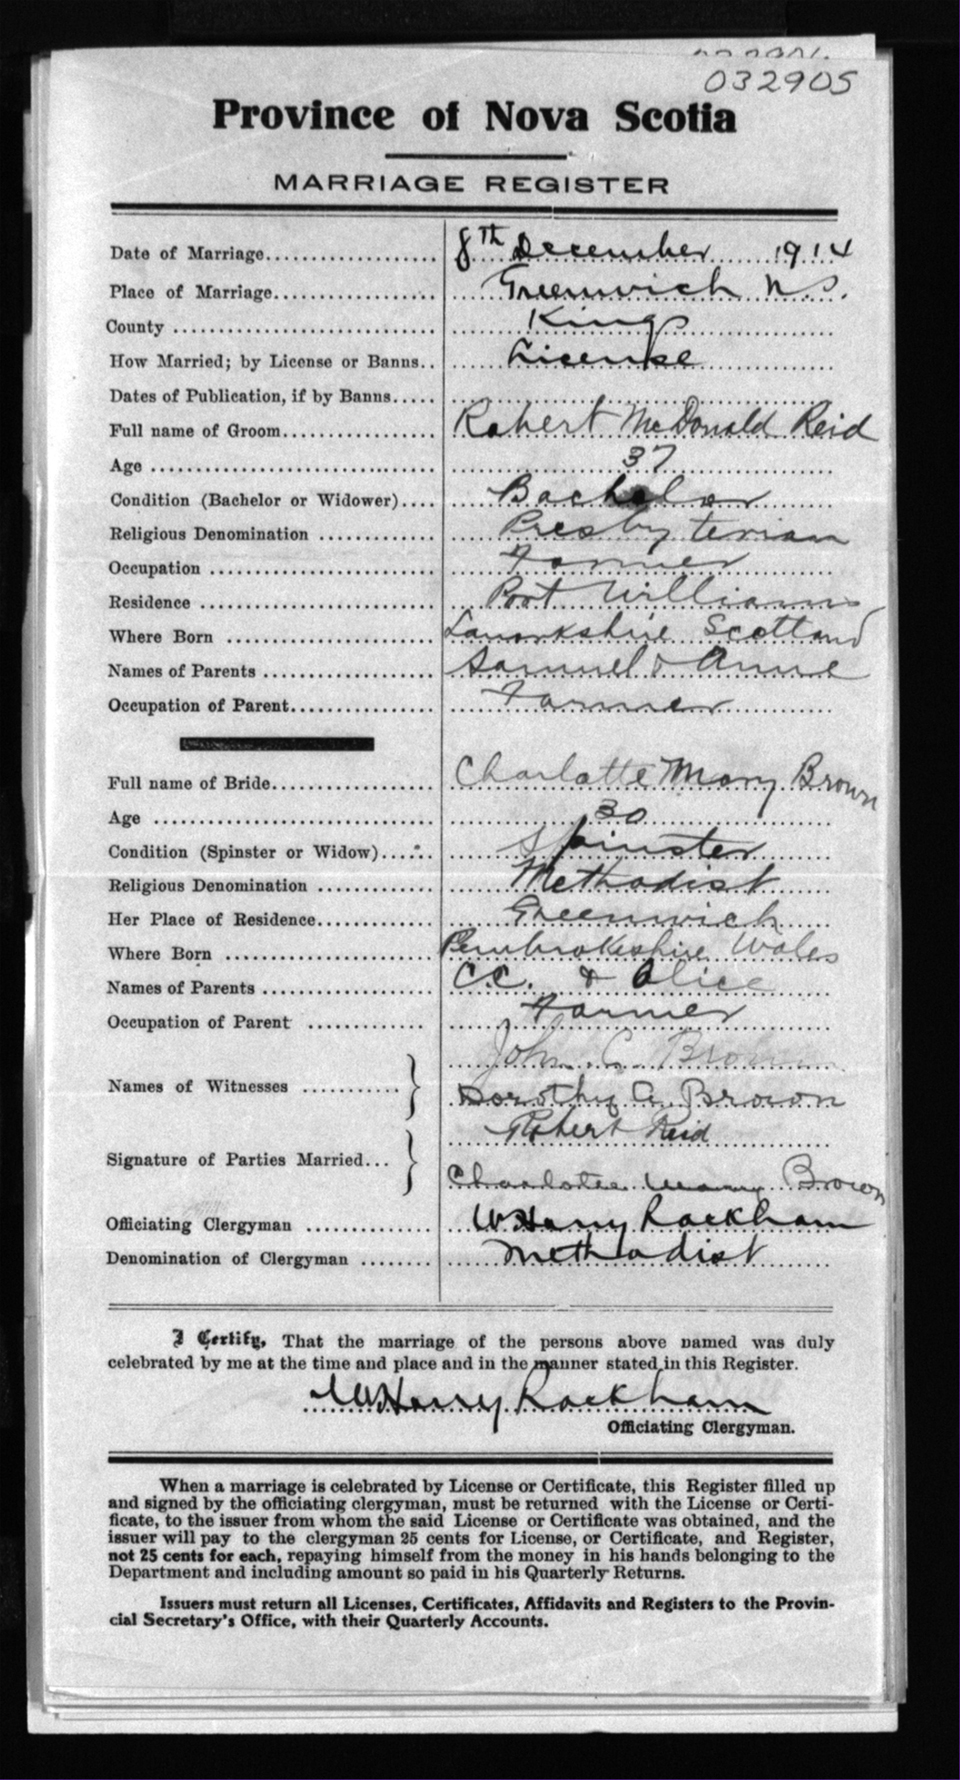 032905
Province of Nova Scotia
MARRIAGE REGISTER
Date of Marriage 8th December 1914
Place of Marriage Greenwich N.S.
County Kings
How Married; by License or Banns License
Dates of Publication, if by Banns
Full name of Groom Robert McDonald Reid
Age 37
Condition (Bachelor or Widower) Bachelor
Religious Denomination Presbyterian
Occupation Farmer
Residence Port Williams
Where Born Lanarkshire Scotland
Names of Parents Samuel & Anne
Occupation of Parent Farmer
Full name of Bride Charlotte Mary Brown
Age 30
Condition (Spinster or Widow) Spinster
Religious Denomination Methodist
Her Place of Residence Greenwich
Where Born Pembrokeshire Wales
Names of Parents C.C. & Alice
Occupation of Parent Farmer
Names of Witnesses John C. Brown
Dorothy A. Brown
Signature of Parties Married Robert Reid
Charlotte Mary Brown
Officiating Clergyman W Harry Rackham
Denomination of Clergyman Methodist
I Certify, That the marriage of the persons above named was duly
celebrated by me at the time and place and in the manner stated in this Register.
W Harry Rackham
Officiating Clergyman.
When a marriage is celebrated by License or Certificate, this Register filled up
and signed by the officiating clergyman, must be returned with the License or Certi-
ficate, to the issuer from whom the said License or Certificate was obtained, and the
issuer will pay to the clergyman 25 cents for License, or Certificate, and Register,
not 25 cents for each, repaying himself from the money in his hands belonging to the
Department and including amount so paid in his Quarterly Returns.
Issuers must return all Licenses, Certificates, Affidavits and Registers to the Provin-
cial Secretary's Office, with their Quarterly Accounts.